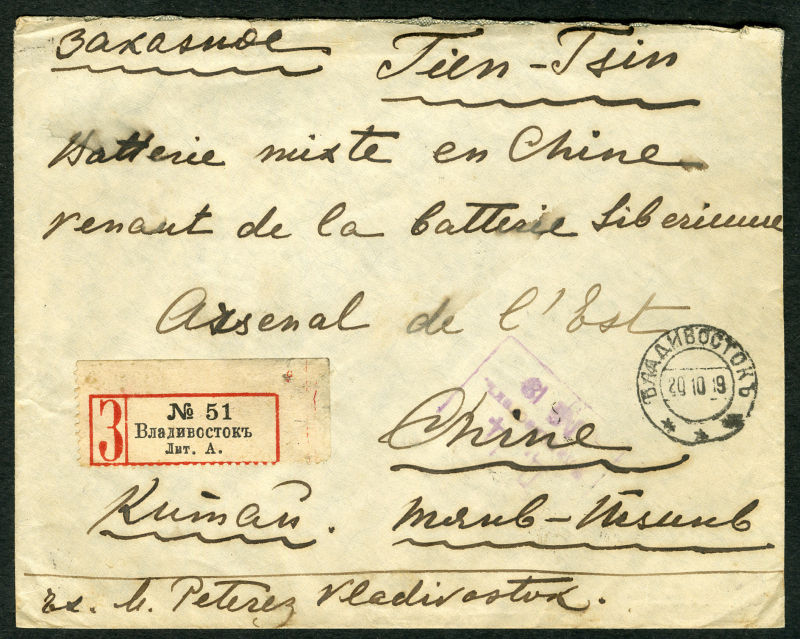 заказное
Tien-Tsin
Batterie mixte en Chine
venant de la batterie Siberienne
Arsenal de l'Est
ВЛАДИВОСТОКЪ
20 10 19
З
№ 51
Владивостокъ
Лит. А.
Chine
Китай. Тянь-Тзинь
Ex. M. Peterez Vladivostok.